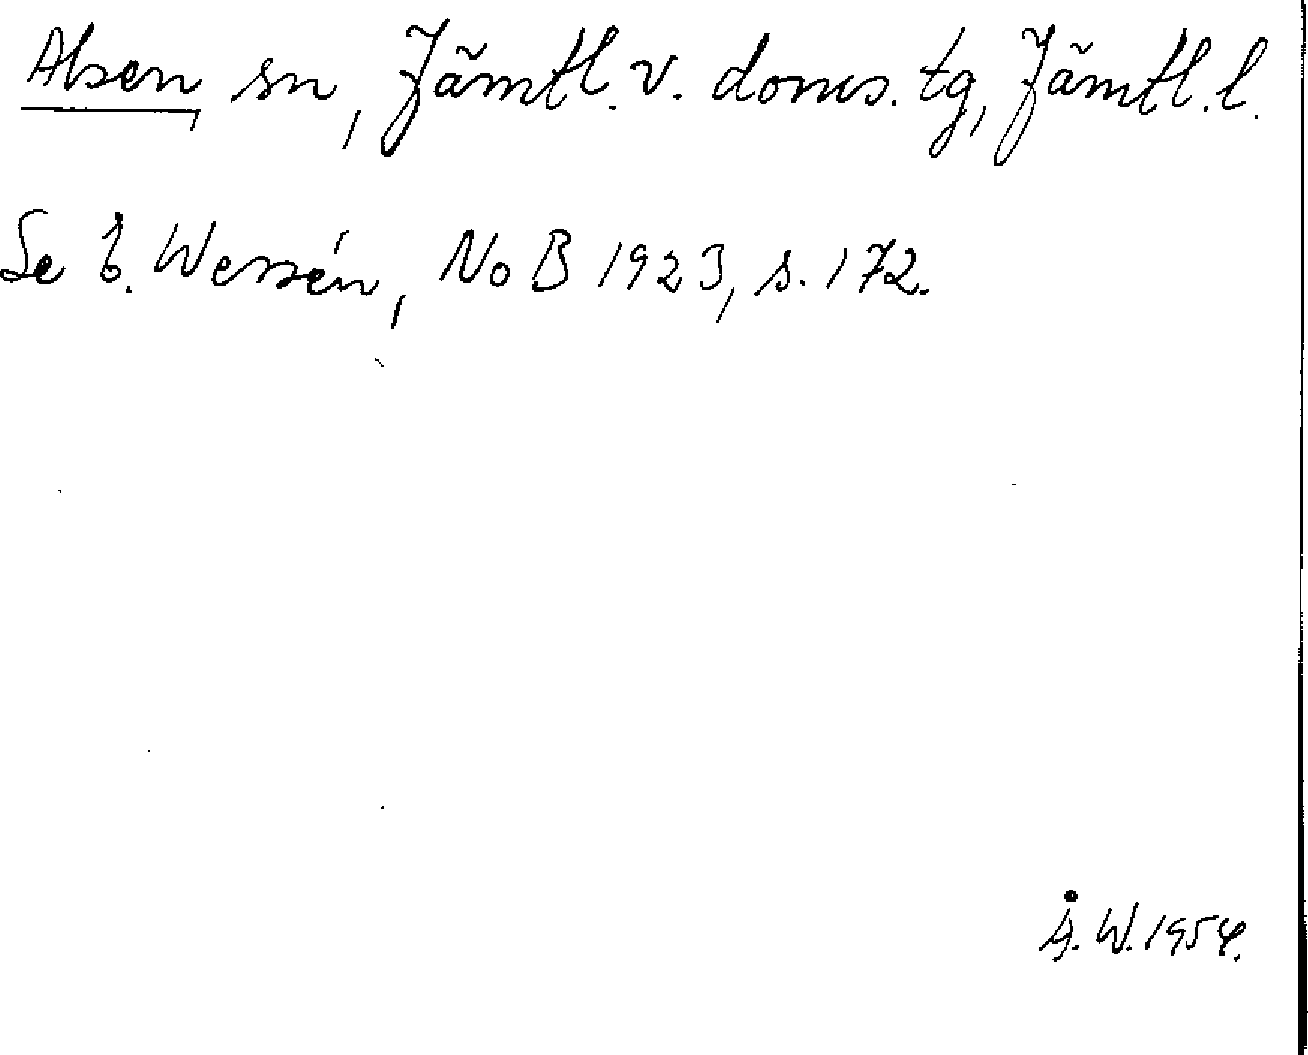 Alsen sn, Jämtl. v. doms. tg, Jämtl. l.
Se E. Wessén, NoB 1923, s. 172.
Å. W. 1954.